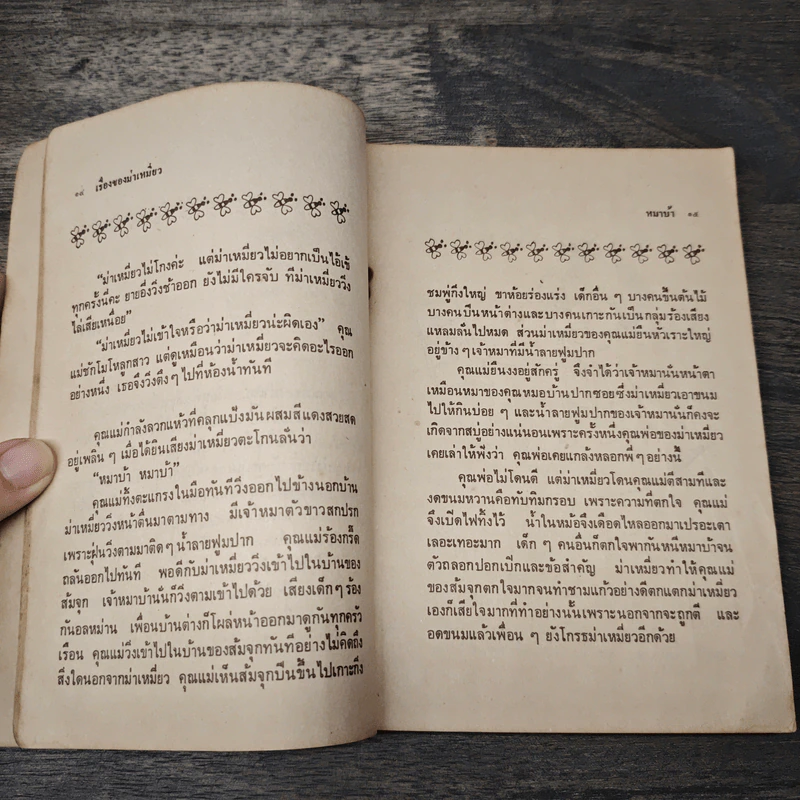 ๑๔ เรื่องของม่าเหมี่ยว
“ม่าเหมี่ยวไม่โกงค่ะ แต่ม่าเหมี่ยวไม่อยากเป็นไอ้เข้
ทุกครั้งนี่คะ ยายอึ่งวิ่งช้าออก ยังไม่มีใครจับ ทีม่าเหมี่ยววิ่ง
ไล่เสียเหนื่อย”
“ม่าเหมี่ยวไม่เข้าใจหรือว่าม่าเหมี่ยวน่ะผิดเอง” คุณ
แม่ชักโมโหลูกสาว แต่ดูเหมือนว่าม่าเหมี่ยวจะคิดอะไรออก
อย่างหนึ่ง เธอจึงวิ่งตึง ๆ ไปที่ห้องน้ำทันที
คุณแม่กำลังลวกแห้วที่คลุกแป้งมันผสมสีแดงสวยสด
อยู่เพลิน ๆ เมื่อได้ยินเสียงม่าเหมี่ยวตะโกนลั่นว่า
“หมาบ้า หมาบ้า”
คุณแม่ทิ้งตะแกรงในมือทันทีวิ่งออกไปข้างนอกบ้าน
ม่าเหมี่ยววิ่งหน้าตื่นมาตามทาง มีเจ้าหมาตัวขาวสกปรก
เพราะฝุ่นวิ่งตามมาติด ๆ น้ำลายฟูมปาก คุณแม่ร้องกรี๊ด
ถลันออกไปทันที พอดีกับม่าเหมี่ยววิ่งเข้าไปในบ้านของ
ส้มจุก เจ้าหมาบ้านั่นก็วิ่งตามเข้าไปด้วย เสียงเด็ก ๆ ร้อง
กันอลหม่าน เพื่อนบ้านต่างก็โผล่หน้าออกมาดูกันทุกครัว
เรือน คุณแม่วิ่งเข้าไปในบ้านของส้มจุกทันทีอย่างไม่คิดถึง
สิ่งใดนอกจากม่าเหมี่ยว คุณแม่เห็นส้มจุกปีนขึ้นไปเกาะกิ่ง
หมาบ้า ๑๕
ชมพู่กิ่งใหญ่ ขาห้อยร่องแร่ง เด็กอื่น ๆ บางคนขึ้นต้นไม้
บางคนปีนหน้าต่างและบางคนเกาะกันเป็นกลุ่มร้องเสียง
แหลมลั่นไปหมด ส่วนม่าเหมี่ยวของคุณแม่ยืนหัวเราะใหญ่
อยู่ข้าง ๆ เจ้าหมาที่มีน้ำลายฟูมปาก
คุณแม่ยืนงงอยู่สักครู่ จึงจำได้ว่าเจ้าหมานั่นหน้าตา
เหมือนหมาของคุณหมอบ้านปากซอยซึ่งม่าเหมี่ยวเอาขนม
ไปให้กินบ่อย ๆ และน้ำลายฟูมปากของเจ้าหมานั่นก็คงจะ
เกิดจากสบู่อย่างแน่นอนเพราะครั้งหนึ่งคุณพ่อของม่าเหมี่ยว
เคยเล่าให้ฟังว่า คุณพ่อเคยแกล้งหลอกพี่ ๆ อย่างนี้
คุณพ่อไม่โดนตี แต่ม่าเหมี่ยวโดนคุณแม่ตีสามทีและ
งดขนมหวานคือทับทิมกรอบ เพราะความที่ตกใจ คุณแม่
จึงเปิดไฟทิ้งไว้ น้ำในหม้อจึงเดือดไหลออกมาเปรอะเตา
เลอะเทอะมาก เด็ก ๆ คนอื่นก็ตกใจพากันหนีหมาบ้าจน
ตัวถลอกปอกเปิกและข้อสำคัญ ม่าเหมี่ยวทำให้คุณแม่
ของส้มจุกตกใจมากจนทำชามแก้วอย่างดีตกแตกม่าเหมี่ยว
เองก็เสียใจมากที่ทำอย่างนั้นเพราะนอกจากจะถูกตี และ
อดขนมแล้วเพื่อน ๆ ยังโกรธม่าเหมี่ยวอีกด้วย